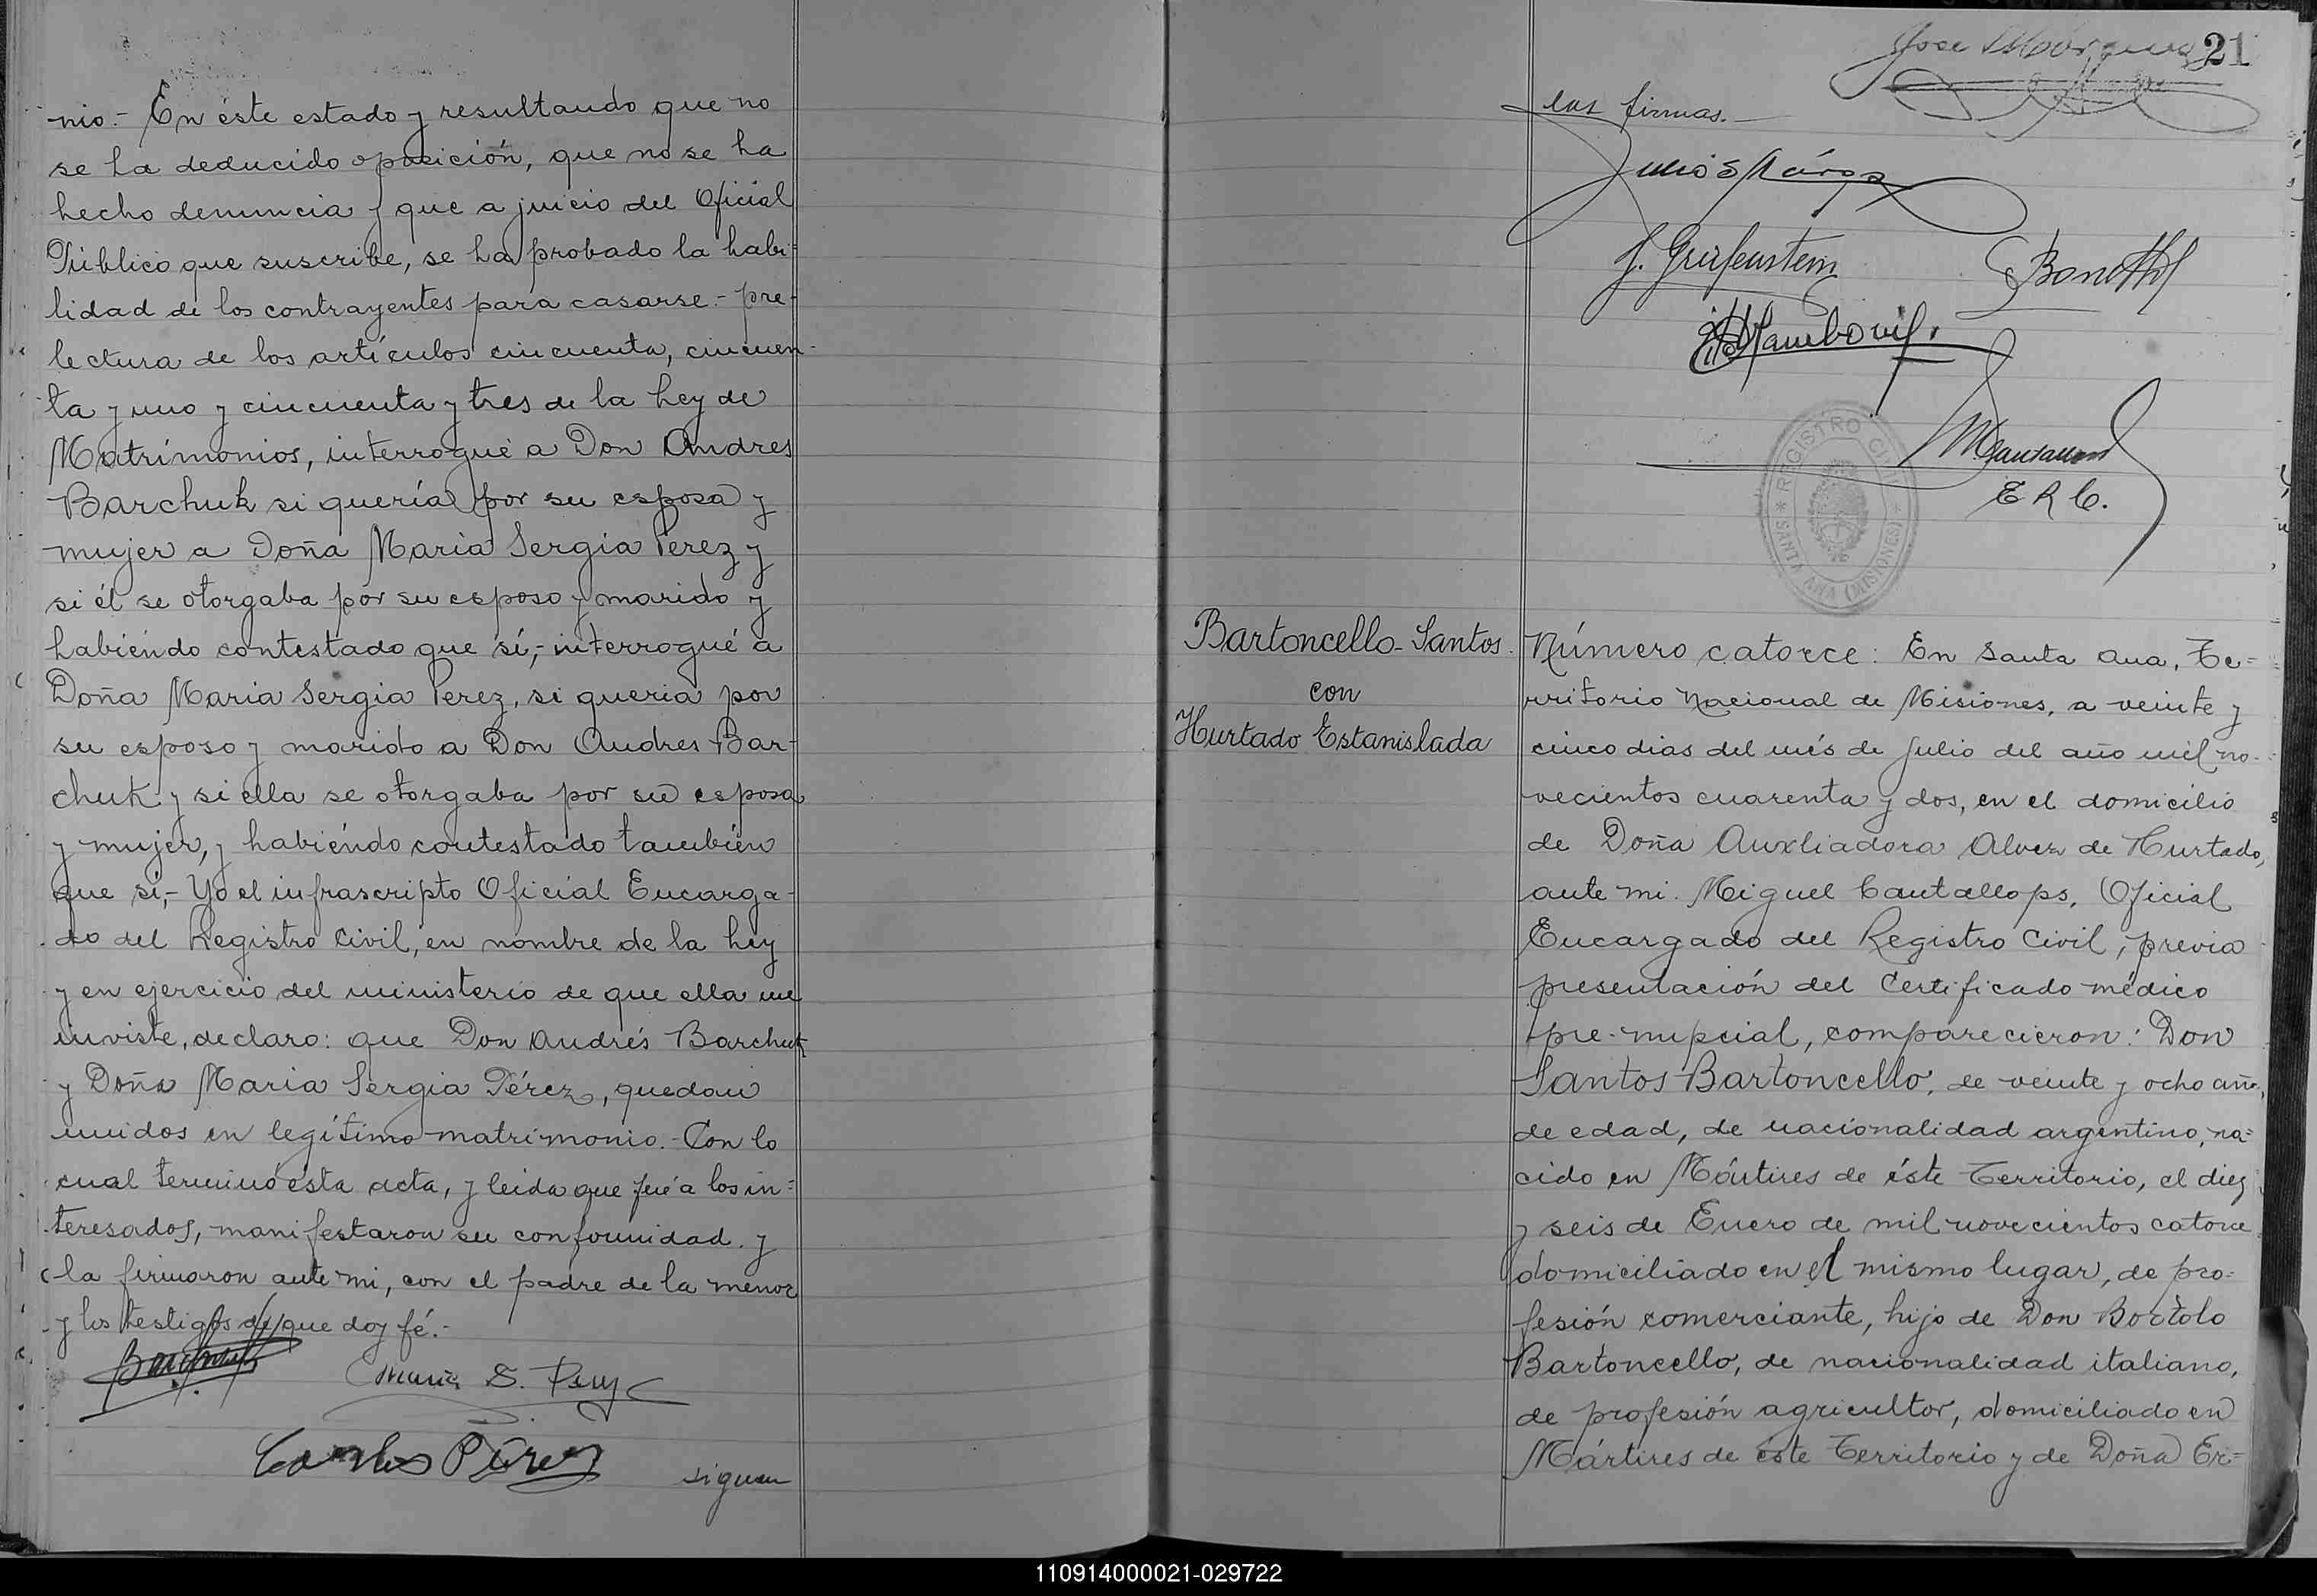 nio.- En éste estado y resultando que no
se ha deducido oposición, que no se ha
hecho denuncia y que a juicio del Oficial
Público que suscribe, se ha probado la habi=
lidad de los contrayentes para casarse.- pre-
lectura de los artículos cincuenta, cincuen-
ta y uno y cincuenta y tres de la Ley de
Matrimonios, interrogué a Don Andres
Barchuk si quería por su esposa y
mujer a Doña María Sergia Perez y
si él se otorgaba por su esposo y marido y
habiéndo contestado que sí,- interrogué a
Doña Maria Sergia Perez, si queria por
su esposo y marido a Don Andres Bar-
chuk y si ella se otorgaba por su esposa
y mujer, y habiéndo contestado también
que si,- Yo el infrascripto Oficial Encarga-
do del Registro Civil, en nombre de la ley
y en ejercicio del ministerio de que ella me
inviste, declaro: que Don Andrés Barchuk
y Doña Maria Sergia Pérez, quedan
unidos en legítimo matrimonio.- Con lo
cual terminó ésta acta, y leida que fué a los in=
teresados, manifestaron su conformidad y
la firmaron ante mi, con el padre de la menor
y los testigos de que doy fé.-
Barchuk
Maria S. Perez
Carlos Pérez
siguen
21
las firmas.-
J. Greifenstein
E R C.
REGISTRO CIVIL
SANTA ANA (MISIONES)
Bartoncello-Santos
con
Hurtado Estanislada
Número catorce: En Santa Ana, Te=
rritorio Nacional de Misiones, a veinte y
cinco dias del més de Julio del año mil no-
vecientos cuarenta y dos, en el domicilio
de Doña Auxliadora Alvez de Hurtado,
ante mi. Miguel Cantallops, Oficial
Encargado del Registro Civil, previa
presentación del Certificado médico
pre-nupcial, comparecieron: Don
Santos Bartoncello, de veinte y ocho años
de edad, de nacionalidad argentino, na=
cido en Mártires de éste Territorio, el diez
y seis de Enero de mil novecientos catorce
domiciliado en el mismo lugar, de pro=
fesión comerciante, hijo de Don Bortolo
Bartoncello, de nacionalidad italiano,
de profesión agricultor, domiciliado en
Mártires de éste Territorio y de Doña Er=
110914000021-029722